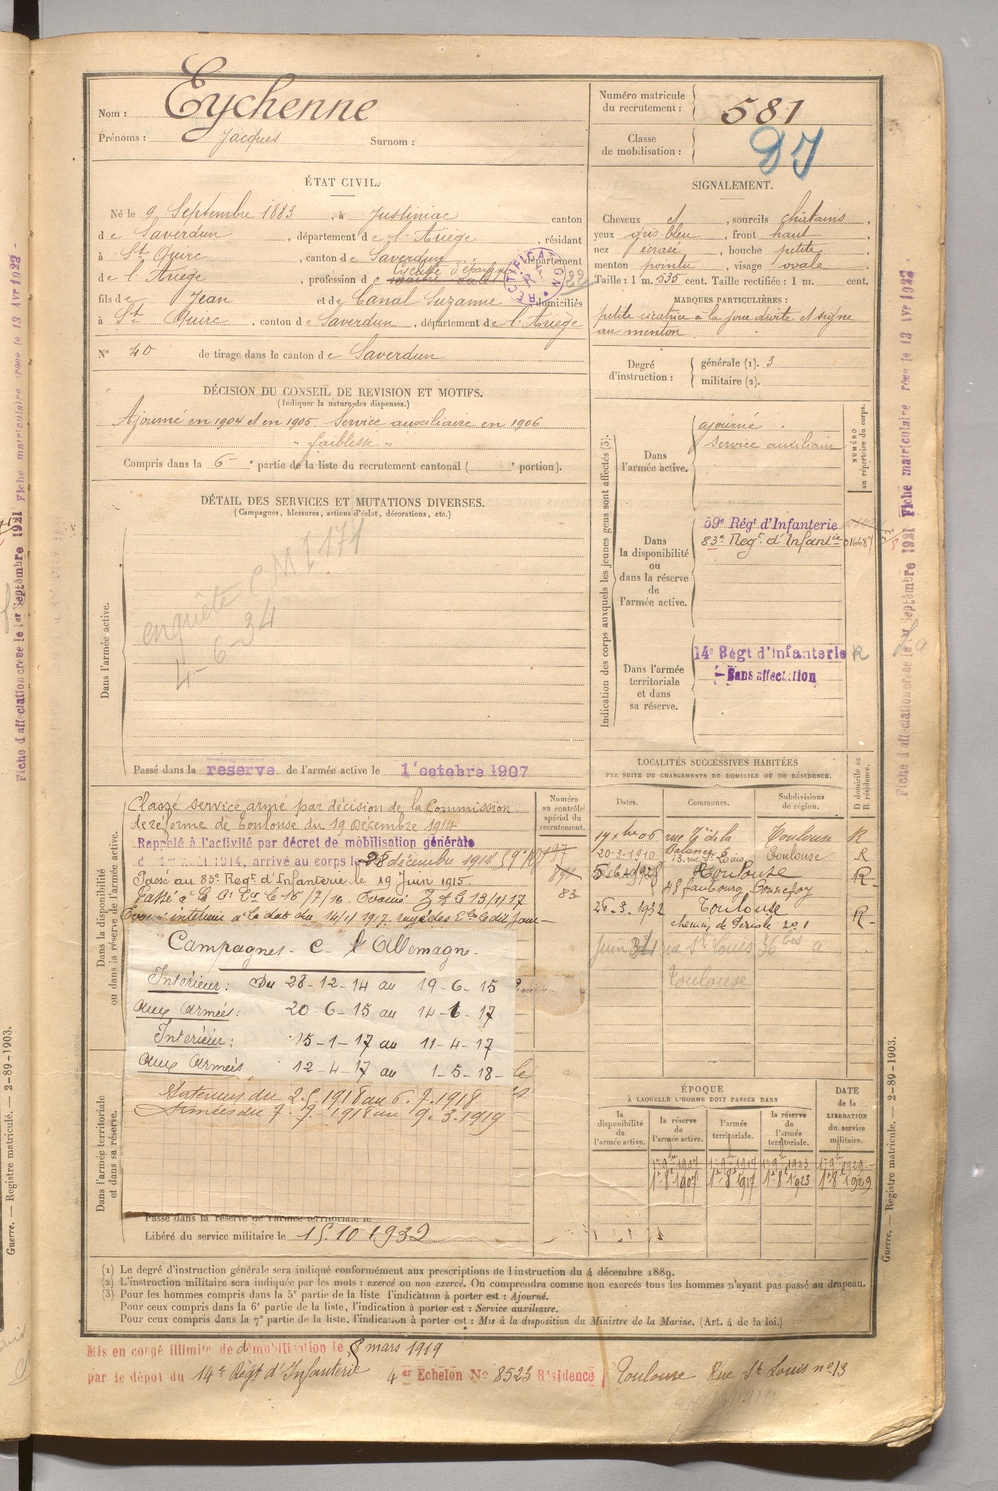 Nom : Eychenne
Prénoms : Jacques Surnom :
Numéro matricule du recrutement : 581
Classe de mobilisation :
ÉTAT CIVIL.
Né le 9 Septembre 1883, à Justiniac canton
de Saverdun, département de l'Ariège, résidant
à St Quirc, canton de Saverdun département
de l'Ariège, profession de
fils de Jean et de Canal Suzanne domiciliés
à St Quirc, canton de Saverdun, département de l'Ariège
RECTIFICATION
RF
N° 40 de tirage dans le canton de Saverdun
DÉCISION DU CONSEIL DE REVISION ET MOTIFS.
(Indiquer la nature des dispenses.)
Ajourné en 1904 et en 1905. Service auxiliaire en 1906
"faiblesse"
Compris dans la 6e partie de la liste du recrutement cantonal ( e portion).
DÉTAIL DES SERVICES ET MUTATIONS DIVERSES.
(Campagnes, blessures, actions d'éclat, décorations, etc.)
Dans l'armée active.
enquête
4-6-34
Passé dans la réserve de l'armée active le 1r octobre 1907
Dans la disponibilité ou dans la réserve de l'armée active.
Classé service armé par décision de la Commission
de réforme de Toulouse du 19 Décembre 1914
Rappelé à l'activité par décret de mobilisation générale
du 1er Août 1914, arrivé au corps le 28 décembre 1914
Passé au 83e Régt d'Infanterie le 19 Juin 1915.
Campagnes c. l'Allemagne.
Intérieur : Du 28-12-14 au 19-6-15
aux armées : 20-6-15 au 14-1-17
Intérieur : 15-1-17 au 11-4-17
aux armées 12-4-17 au 1-5-18
Intérieur du 2.5.1918 au 6.7.1918
Armées du 7.7.1918 au 9.3.1919
Dans l'armée territoriale et dans sa réserve.
Passé dans la réserve de l'armée territoriale le
Libéré du service militaire le 15.10.1932
SIGNALEMENT.
Cheveux et, sourcils châtains,
yeux gris bleu, front haut
nez écrasé, bouche petite
menton pointu, visage ovale
Taille : 1 m. 535 cent. Taille rectifiée : 1 m. cent.
MARQUES PARTICULIÈRES :
petite cicatrice à la joue droite et signe
au menton
Degré d'instruction : générale (1). 3
militaire (2).
Indication des corps auxquels les jeunes gens sont affectés (3).
NUMÉRO au répertoire du corps.
Dans l'armée active.
ajourné
service auxiliaire
Dans la disponibilité ou dans la réserve de l'armée active.
59e Régt d'Infanterie
83e Régt d'Infanterie
Dans l'armée territoriale et dans sa réserve.
14e Régt d'Infanterie R
Sans affectation
LOCALITÉS SUCCESSIVES HABITÉES
PAR SUITE DE CHANGEMENTS DE DOMICILE OU DE RÉSIDENCE.
Numéro au contrôle spécial du recrutement.
Dates. Communes. Subdivisions de région. D domicile ou R résidence.
83
Toulouse R
20-3-1910 13, rue St Louis Toulouse R
Toulouse R
48 faubourg Bonnefoy
26.3.1932 Toulouse R
rue St Louis 36 bis
Toulouse
ÉPOQUE
À LAQUELLE L'HOMME DOIT PASSER DANS
DATE de la LIBÉRATION du service militaire.
la disponibilité de l'armée active. la réserve de l'armée active. l'armée territoriale. la réserve de l'armée territoriale.
(1) Le degré d'instruction générale sera indiqué conformément aux prescriptions de l'instruction du 4 décembre 1889.
(2) L'instruction militaire sera indiquée par les mots : exercé ou non exercé. On comprendra comme non exercés tous les hommes n'ayant pas passé au drapeau.
(3) Pour les hommes compris dans la 5e partie de la liste l'indication à porter est : Ajourné.
Pour ceux compris dans la 6e partie de la liste, l'indication à porter est : Service auxiliaire.
Pour ceux compris dans la 7e partie de la liste, l'indication à porter est : Mis à la disposition du Ministre de la Marine. (Art. 4 de la loi.)
Mis en congé illimité de démobilisation le 8 mars 1919
par le dépôt du 14e Régt d'Infanterie 4er Echelon No 8523 Résidence Toulouse Rue St Louis no 13
Guerre. — Registre matricule. — 2-89-1903.
Guerre. — Registre matricule. — 2-89-1903.
Fiche d'affectation créée le 1er Septembre 1921 Fiche matriculaire créée le 13 Avr 1922
Fiche d'affectation créée le 1er Septembre 1921 Fiche matriculaire créée le 13 Avr 1922